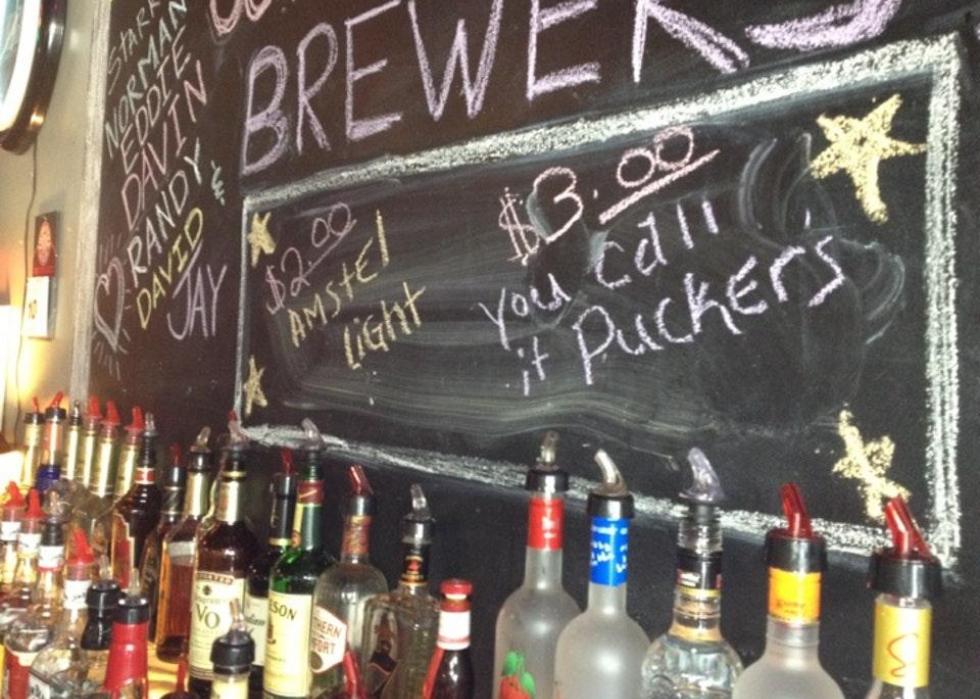 BREWERS
STARR
NORMAN
EDDIE
DAVIN
RANDY &
DAVID
JAY
$2.00
AMSTEl
light
$3.00
you call
it Puckers
VO